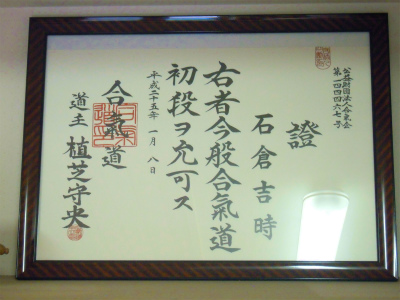 公益財団法人合気会
第一四四四六七号
證
石倉吉時
右者今般合氣道
初段ヲ允可ス
平成二十五年一月八日
合氣道
道主 植芝守央